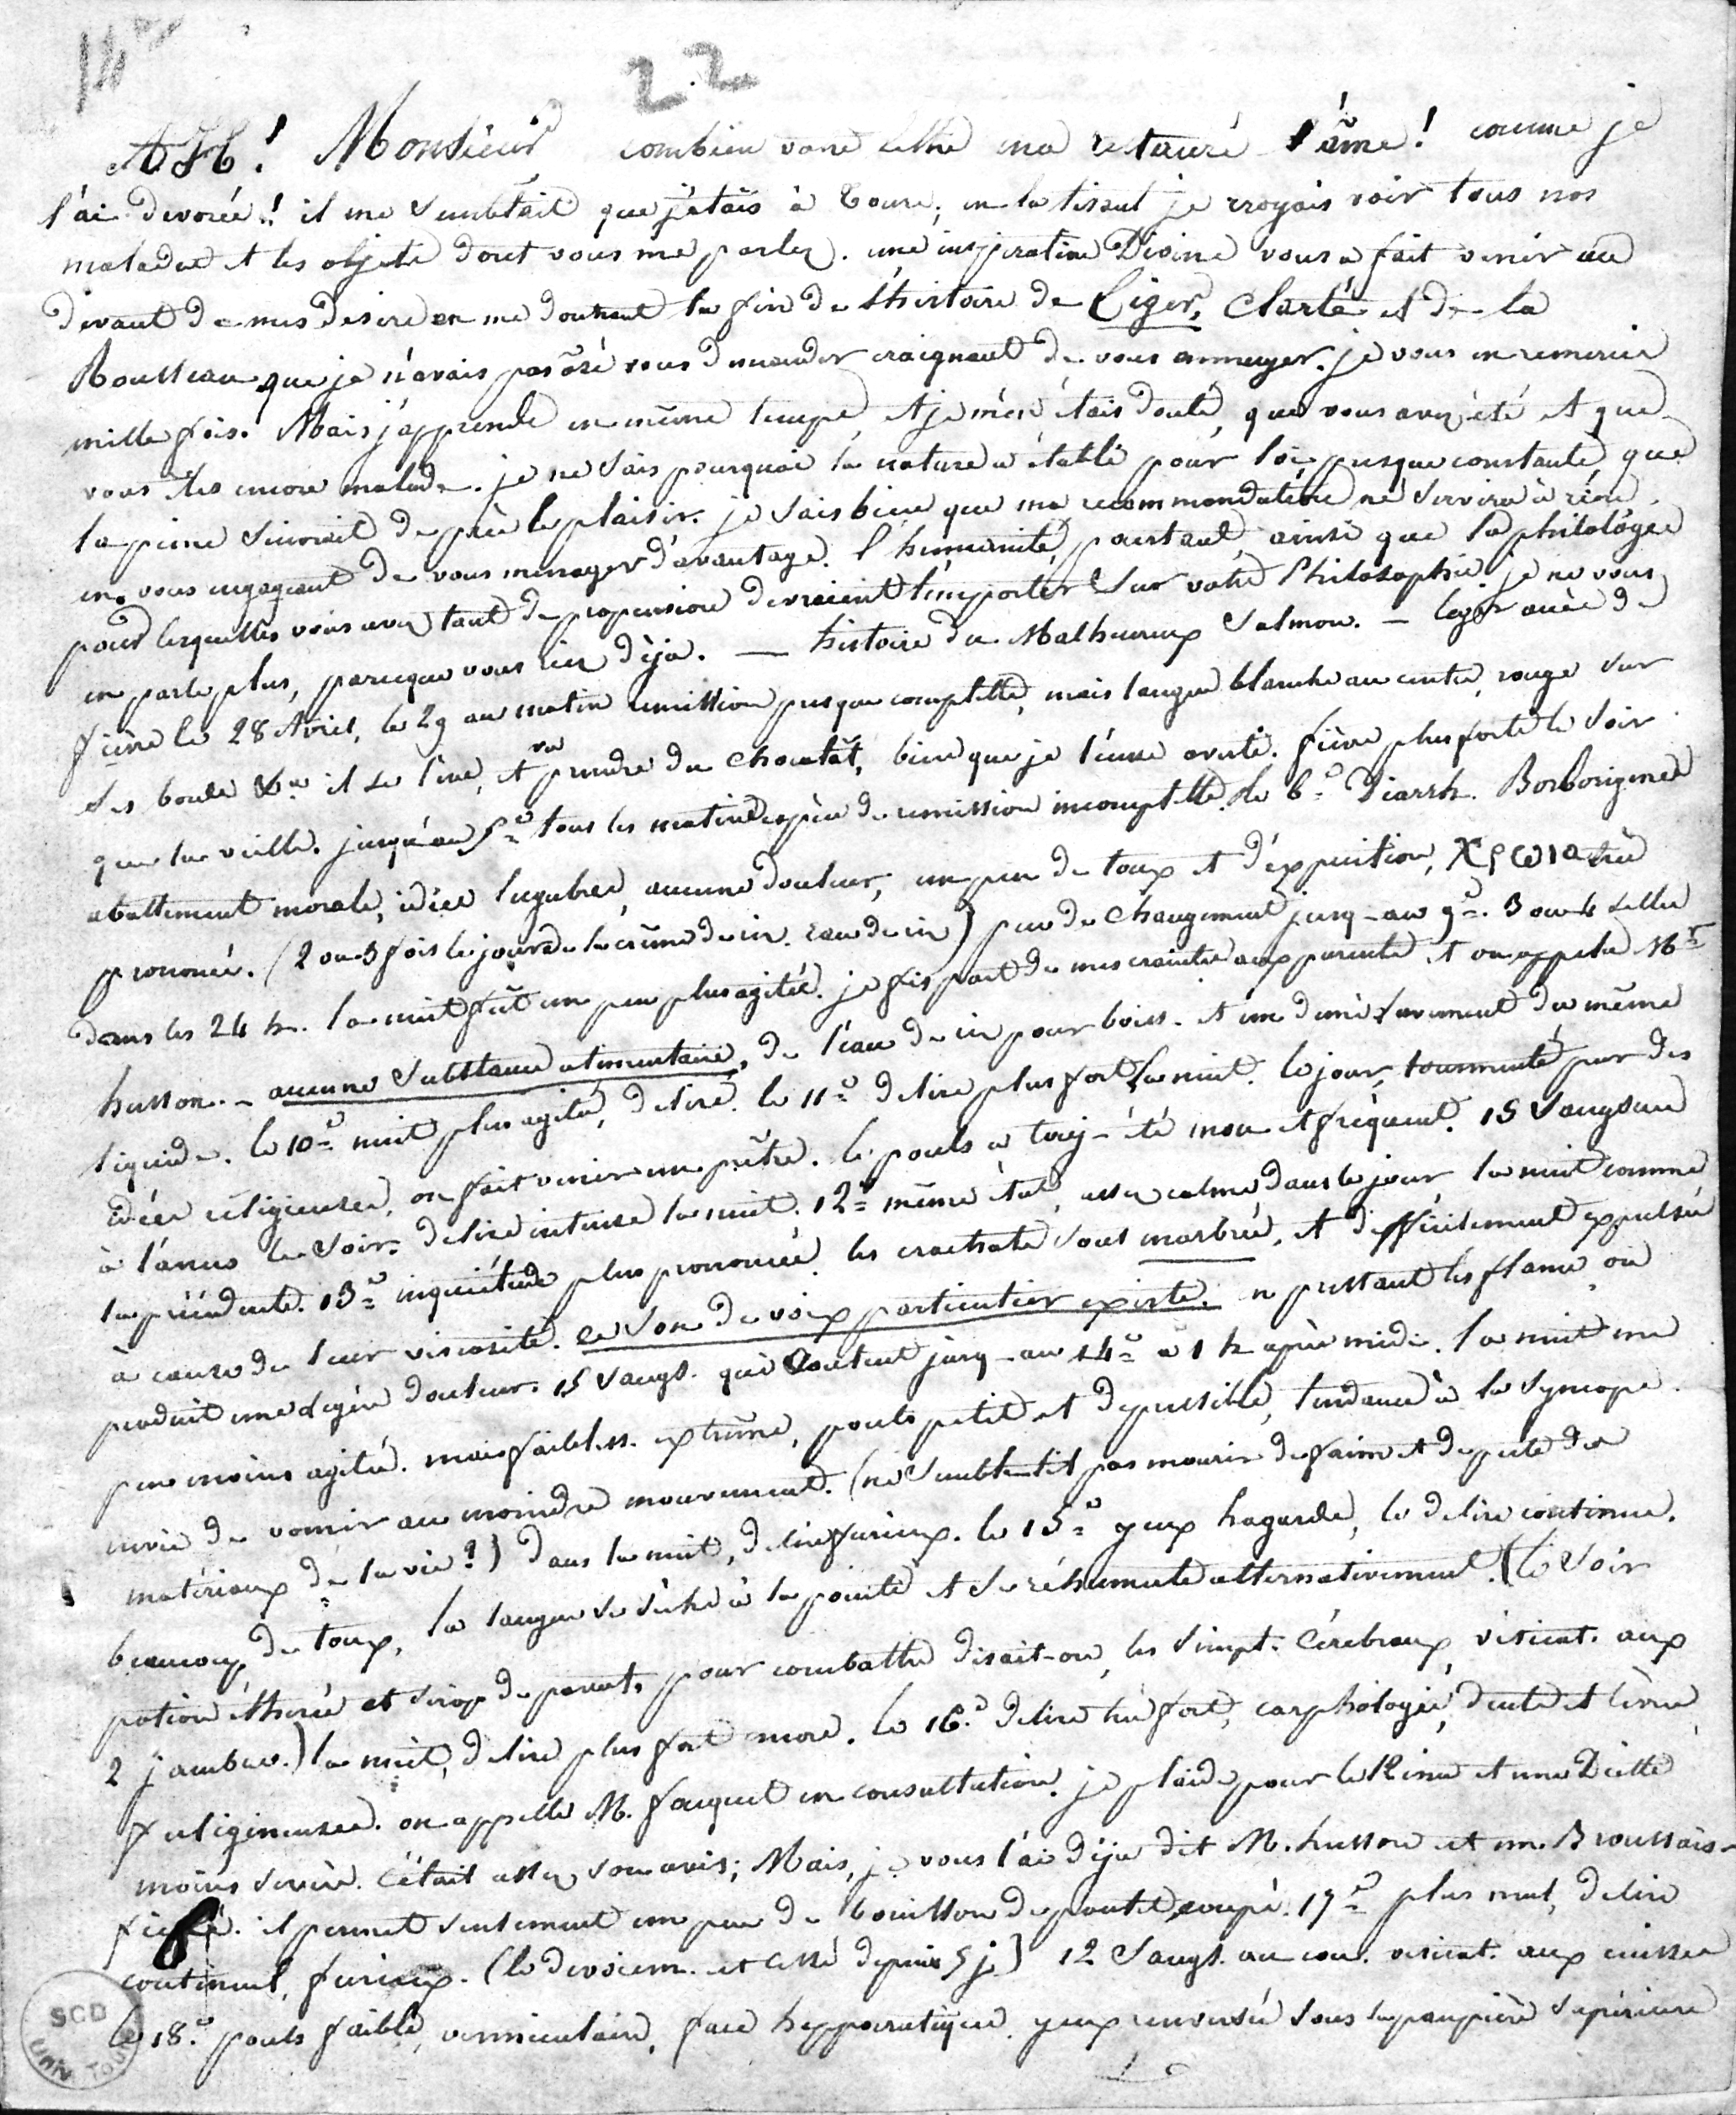 22
AH! Monsieur combien votre lettre m'a restauré l'âme! comme je
l'ai devorée!! il me semblait que j'étais à Tours; en la lisant je croyais voir tous nos
malades et les objets dont vous me parlez. une inspiration Divine vous a fait venir au
devant de mes desirs en me donnant la fin de l'histoire de Liger, Clarté et de la
Rousseau que je n'avais pas ôsé vous demander craignant de vous ennuyer. je vous en remercie
mille fois. Mais j'apprends en même temps, et je m'en étais douté, que vous avez été et que
vous êtes encore malade. je ne sais pourquoi la nature a établi pour loi presque constante, que
la peine suivrait de près le plaisir. je sais bien que ma recommandation ne servira à rien
en vous engageant de vous menager d'avantage. l'humanité, pourtant, ainsi que la philologie
pour lesquelles vous avez tant de propension devraient l'emporter sur votre Philosophie. je ne vous
en parle plus, parceque vous riez déja. — histoire du Malheureux Salmon. — leger accès de
fièvre le 28 Avril, le 29 au matin remission presque complette, mais langue blanche au centre, rouge sur
ses bords il se lève, et va prendre du chocolat, bien que je l'eusse averti. fièvre plus forte le soir
que la veille. jusqu'au 5e tous les matins espèce de remission incomplette. le 6e Diarrh. Borborigmes
abattement morale, idées lugubres, aucune douleur, un peu de toux et d'expuition, très
prononcé. (2 ou 3 fois le jour de la crême de riz. eau de riz) peu de changement jusq-au 9e. 3 ou 4 selles
dans les 24 h. la nuit fût un peu plus agitée. je fis part de mes craintes aux parents et on appela Mr
husson. – aucune substance alimentaire, de l'eau de riz pour boiss. et un demi lavement du même
liquide. le 10e nuit plus agitée, delire. le 11e delire plus fort la nuit. le jour, tourmenté par des
idées religieuses, on fait venir un prêtre. le pouls a touj– été mou et fréquent. 15 Sangsues
à l'anus le soir. delire intense la nuit. 12e même état, assez calme dans le jour la nuit comme
la précédente. 13e inquiétude plus prononcée les crachats sont marbrés, et difficilement expulsés
à cause de leur viscosité. ce son de voix particulier existe. en pressant les flancs on
produit une legère douleur. 15 sangs. qui coulent jusq–au 14e à 1 h après midi. la nuit un
peu moins agitée. mais faibless. extrême, pouls petit et depressible, tendance à la syncope
envie de vomir au moindre mouvement. (ne semble-t-il pas mourir de faim et de perte des
matériaux de la vie?) dans la nuit, delire furieux. le 15e yeux hagards, le delire continue.
beaucoup de toux, la langue se sèche à la pointe et se réhumecte alternativement. (le soir
potion éthérée et sirop de pavot, pour combattre disait-on, les simpt. Cérébraux vésicat. aux
2 jambes.) la nuit, delire plus fort encore. le 16e delire très fort, carphologie, dents et lèvres
fuligineuses. on appelle M. fouquet en consultation. je plaide pour le Kina et une Diette
moins sevère. C'était assez son avis; Mais, je vous l'ai déja dit M. husson est un Broussais-
fieffé. il permet seulement un peu de bouillon de poulet, coupé. 17e plus mal, delire
continuel, furieux. (le devoiem. est cessé depuis 5 j.) 12 Sangs. au cou. vésicat. aux cuisses
le 18e pouls faible, vermiculaire, face hyppocratique yeux renversés sous la paupière supérieure
SCD
UNIV TOURS